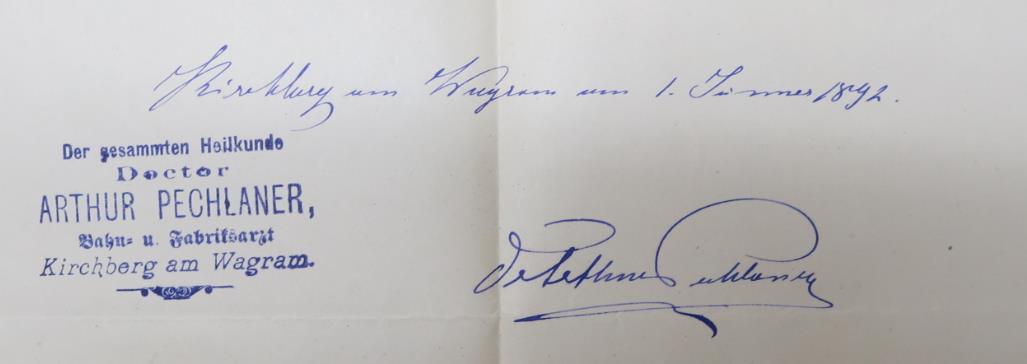 Kirchberg am Wagram am 1. Jänner 1892.
Der gesammten Heilkunde
Doctor
ARTHUR PECHLANER,
Bahn- u. Fabriksarzt
Kirchberg am Wagram.
Dr Arthur Pechlaner